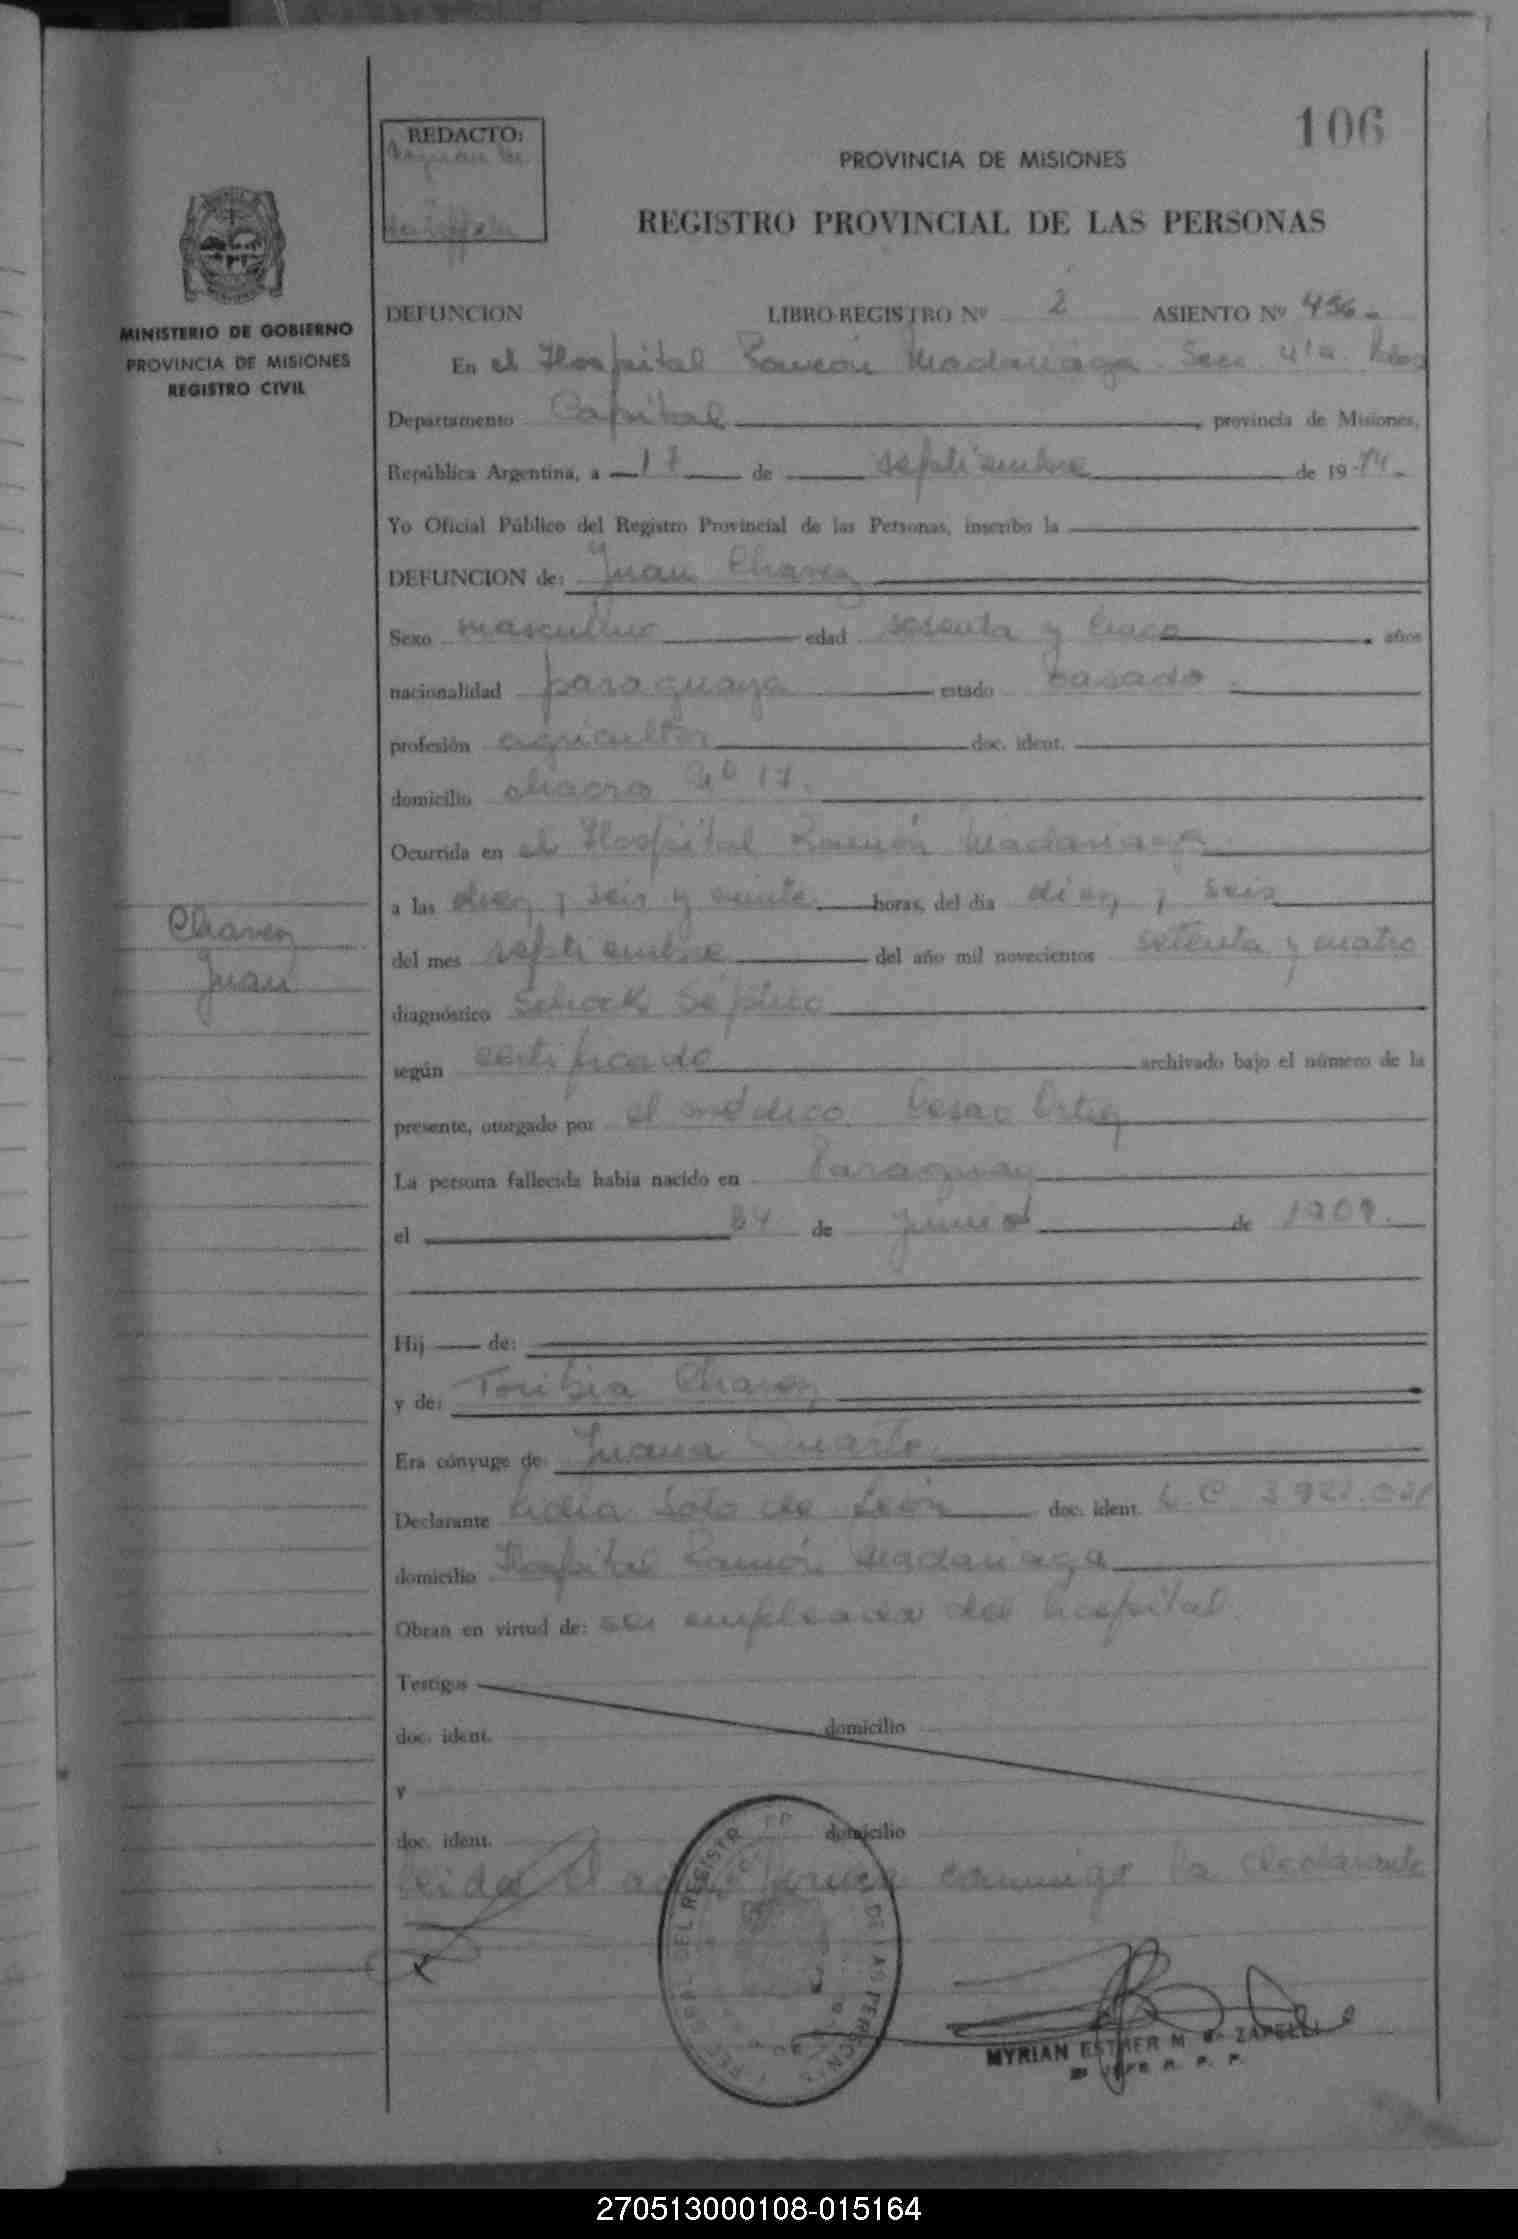 106
REDACTO:
PROVINCIA DE MISIONES
REGISTRO PROVINCIAL DE LAS PERSONAS
MINISTERIO DE GOBIERNO
PROVINCIA DE MISIONES
REGISTRO CIVIL
DEFUNCION LIBRO-REGISTRO Nº 2 ASIENTO Nº 456
En el Hospital Ramón Madariaga Secc. 4ta.
Departamento Capital provincia de Misiones,
República Argentina, a 17 de septiembre de 1974
Yo Oficial Público del Registro Provincial de las Personas, inscribo la
DEFUNCION de: Juan Chavez
Sexo masculino edad sesenta y cinco años
nacionalidad paraguaya estado casado
profesión agricultor doc. ident.
domicilio chacra Nº 17.
Ocurrida en el Hospital Ramón Madariaga
a las diez y seis y veinte horas, del día diez y seis
Chavez
Juan
del mes septiembre del año mil novecientos setenta y cuatro
diagnóstico Schock Séptico
según certificado archivado bajo el número de la
presente, otorgado por el médico Cesar Ortiz
La persona fallecida había nacido en Paraguay
el 24 de junio de 1909.
Hij de:
y de: Toribia Chavez
Era cónyuge de: Juana Duarte
Declarante Lidia Soto de León doc. ident. L.C. 3.922.021
domicilio Hospital Ramón Madariaga
Obran en virtud de: ser empleada del hospital.
Testigos
doc. ident. domicilio
y
doc. ident. domicilio
Leida el acta firma conmigo la declarante
DEL REGISTR DE LAS PERSON
MYRIAN ESTHER M. ZAPELLI
JEFE R. P. P.
270513000108-015164